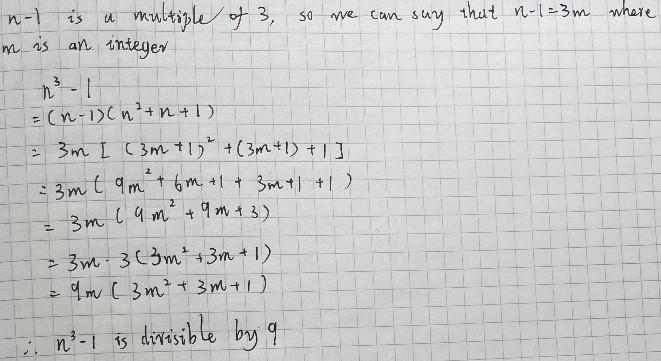 n-1 is a multiple of 3, so we can say that n-1=3m where
m is an integer
n³ - 1
= (n-1)(n²+n+1)
= 3m [ (3m+1)² + (3m+1) + 1 ]
= 3m ( 9m² + 6m + 1 + 3m+1 + 1 )
= 3m ( 9m² + 9m + 3 )
= 3m · 3 ( 3m² + 3m + 1 )
= 9m ( 3m² + 3m + 1 )
∴ n³-1 is divisible by 9